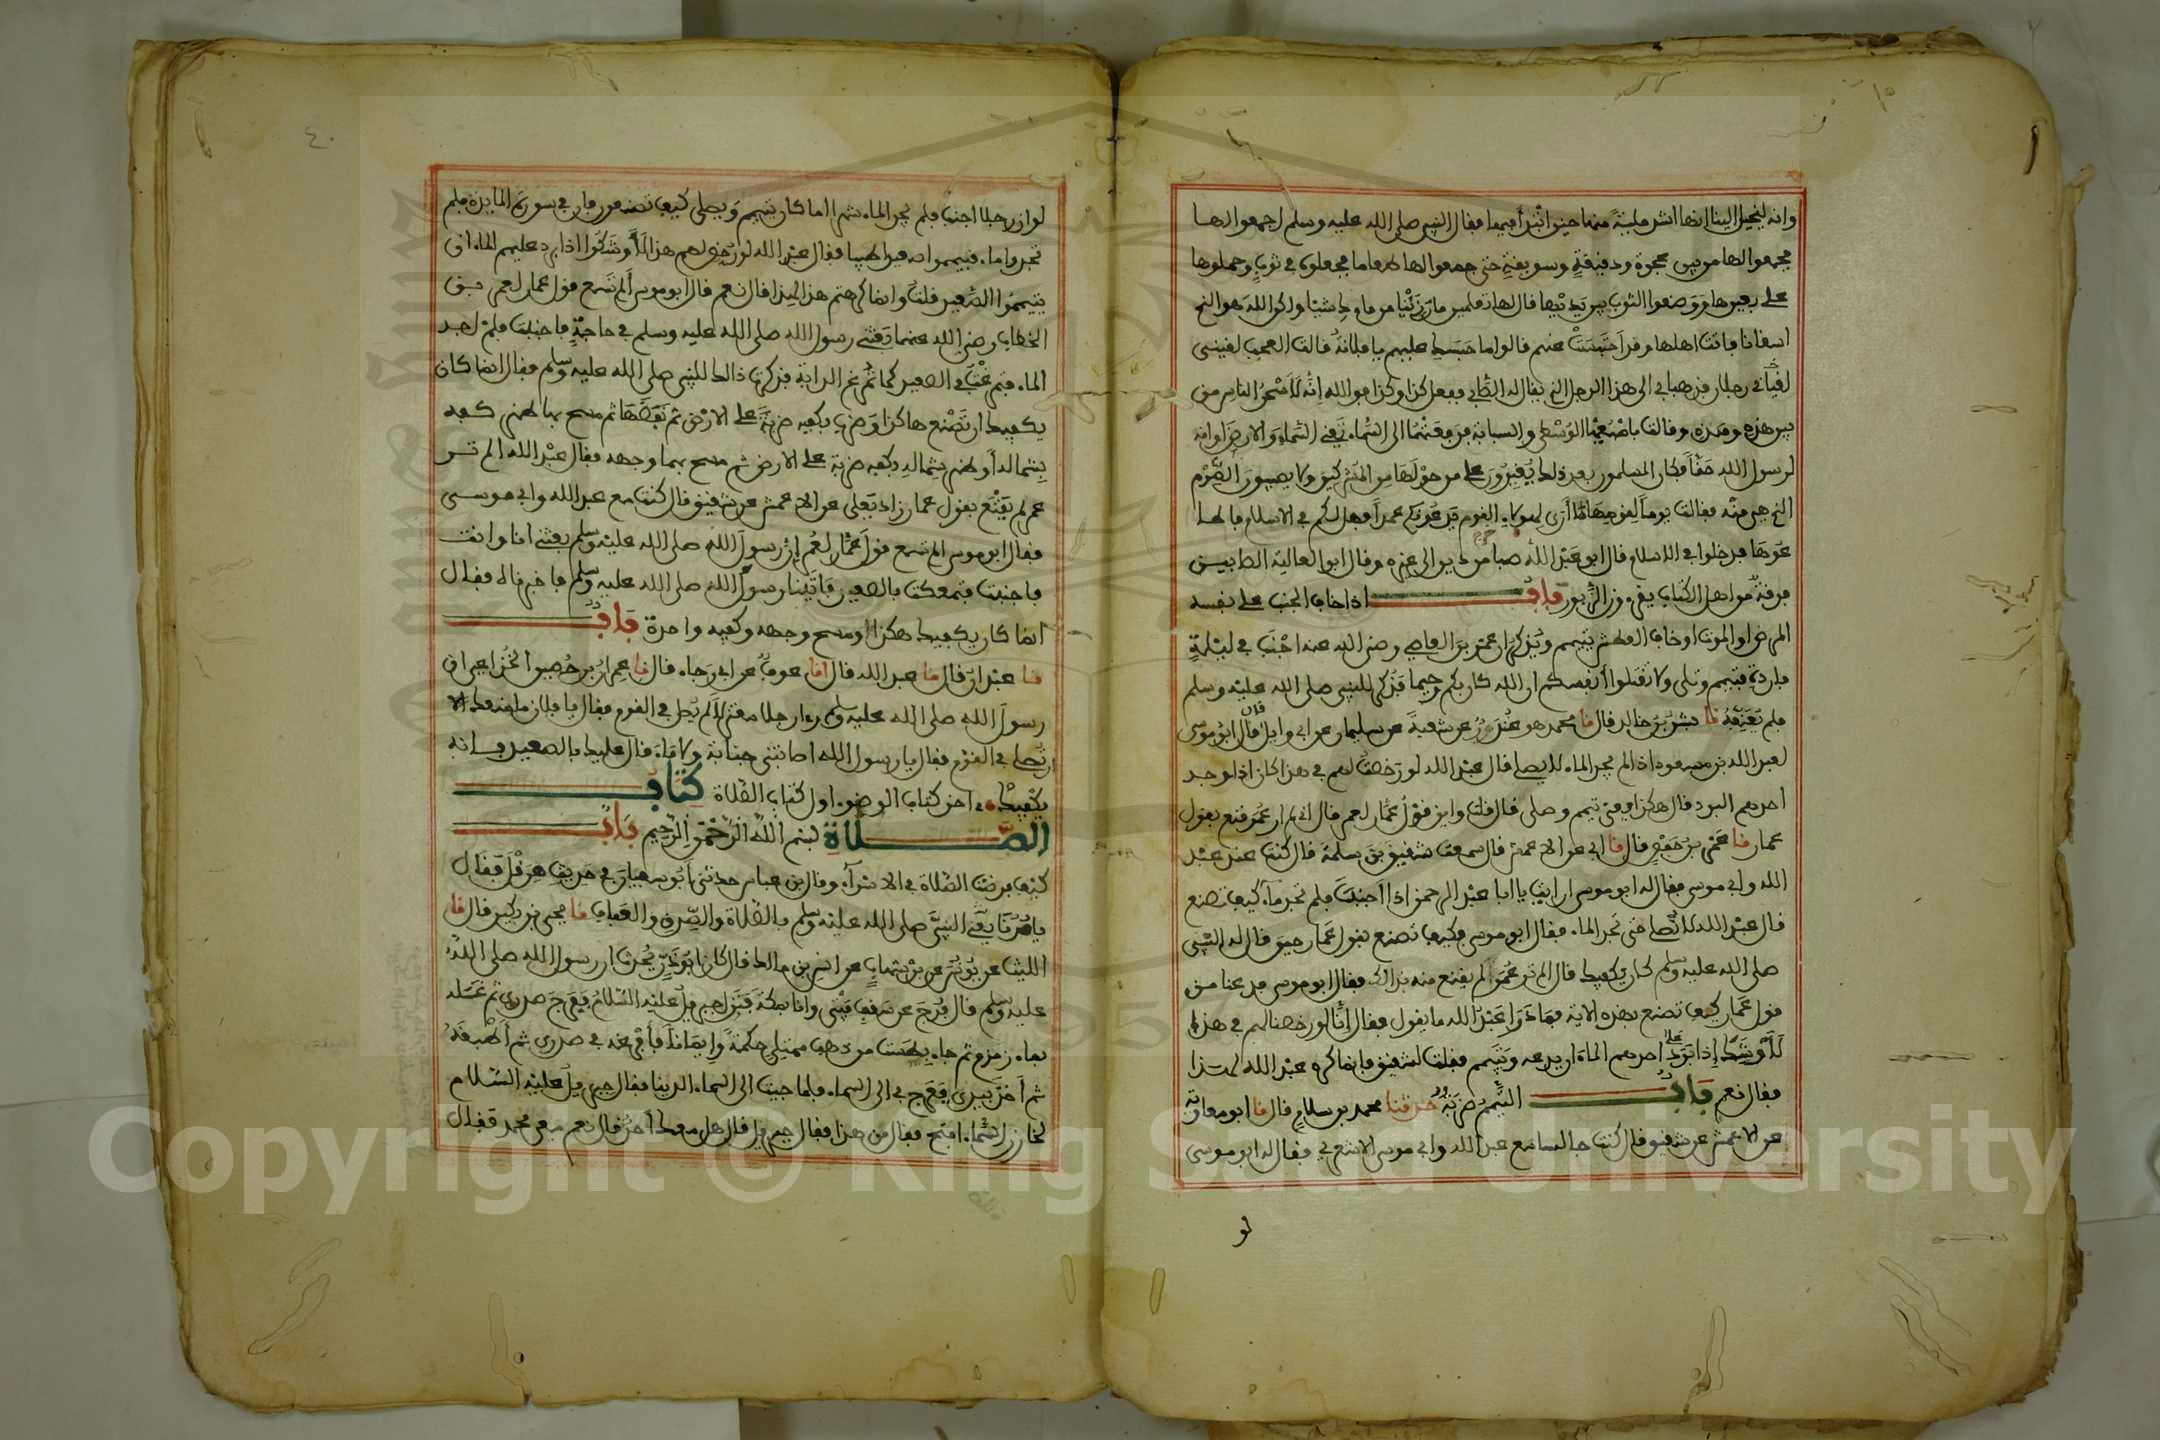 وانه ليخيل الينا انها اشد ملئة منها حين ابتدأ فيها فقال النبي صلى الله عليه وسلم اجمعوا لها
فجمعوا لها من بين عجوة ودقيقة وسويقة حتى جمعوا لها طعاما فجعلوه في ثوب وحملوها
على بعيرها ووضعوا الثوب بين يديها قال لها تعلمين ما رزئنا من ماءك شيئا ولكن الله هو الذي
اسقانا فاتت اهلها وقد احتبست عنهم قالوا ما حبسك عليهم يا فلانة قالت العجب لقيني
لقيني رجلان فذهبا بي الى هذا الرجل الذي يقال له الصابي ففعل كذا وكذا فوالله انه لأسحر الناس من
بين هذه وهذه وقالت باصبعيها الوسطى والسبابة فرفعتهما الى السماء تعني السماء والارض او انه
لرسول الله حقا فكان المسلمون بعد ذلك يغيرون على من حولها من المشركين ولا يصيبون الصرم
الذي هي منه فقالت يوما لقومها ما أرى ان هولاء القوم يدعونكم عمدا فهل لكم في الاسلام فاطا
عوها فدخلوا في الاسلام قال ابو عبد الله صبا خرج من دين الى غيره وقال ابو العالية الصابين
فرقة من اهل الكتاب يقرءون الزبور باب اذا خاف الجنب على نفسه
المرض او الموت او خاف العطش تيمم ويذكر ان عمرو بن العاصي رضي الله عنه اجنب في ليلة
باردة فتيمم وتلى ولا تقتلوا أنفسكم ان الله كان بكم رحيما فذكر للنبي صلى الله عليه وسلم
فلم يعنفه نا بشر بن خالد قال نا محمد هو غندر عن شعبة عن سليمان عن ابي وايل قال قال ابو موسى
لعبد الله بن مسعود اذا لم يجد الماء لا يصلي قال عبد الله لو رخصت لهم في هذا كان اذا وجد
احدهم البرد قال هكذا يعني تيمم وصلى قال قلت واين قول عمار لعمر قال اني لم ار عمر قنع بقول
عمار نا عمر بن حفص قال نا ابي عن الاعمش قال سمعت شقيق بن سلمة قال كنت عند عبد
الله وابي موسى فقال له ابو موسى ارايت يا ابا عبد الرحمن اذا اجنبت فلم تجد ماء كيف تصنع
قال عبد الله لا تصلي حتى تجد الماء فقال ابو موسى فكيف تصنع بقول عمار حين قال له النبي
صلى الله عليه وسلم كان يكفيك قال الم تر عمر لم يقنع منه بذلك فقال ابو موسى فدعنا من
قول عمار كيف تصنع بهذه الاية فما درى عبد الله ما يقول فقال إنا لو رخصنا لهم في هذا
لأوشك إذا برد على احدهم الماء ان يدعه ويتيمم فقلت لشقيق فانما كره عبد الله لهذا
فقال نعم باب التيمم ضربة حدثنا محمد بن سلام قال نا ابو معاوية
عن الاعمش عن شقيق قال كنت جالسا مع عبد الله وابي موسى الاشعري فقال له ابو موسى
لو
٤٠
لو ان رجلا اجنب فلم يجد الماء شهرا اما كان تيمم ويصلي كيف تصنعون في سورة المايدة فلم
تجدوا ماء فتيمموا صعيدا طيبا فقال عبد الله لو رخص لهم هذا لأوشكوا اذا برد عليهم الماء ان
يتيمموا الصعيد قلت وانما كرهتم هذا لهذا قال نعم قال ابو موسى ألم تسمع قول عمار لعمر بن
الخطاب رضي الله عنهما بعثني رسول الله صلى الله عليه وسلم في حاجة فاجنبت فلم اجد
الماء فتمرغت في الصعيد كما تمرغ الدابة فذكرت ذالك للنبي صلى الله عليه وسلم فقال انما كان
يكفيك ان تصنع هاكذا وضرب بكفيه ضربة على الارض ثم نفضها ثم مسح بها ظهر كفه
بشماله أو ظهر شماله بكفيه ضربة على الارض ثم مسح بهما وجهه فقال عبد الله الم تر
عمر لم يقنع بقول عمار زاد يعلى عن الاعمش عن شقيق قال كنت مع عبد الله وابي موسى
فقال ابو موسى الم تسمع قول عمار لعمر إن رسول الله صلى الله عليه وسلم بعثني انا وانت
فاجنبت فتمعكت بالصعيد فأتينا رسول الله صلى الله عليه وسلم فاخبرناه فقال
انما كان يكفيك هكذا ومسح وجهه وكفيه واحدة باب
نا عبدان قال نا عبد الله قال انا عوف عن ابي رجاء قال نا عمران بن حصين الخزاعي ان
رسول الله صلى الله عليه وسلم رءا رجلا معتزلا لم يصل في القوم فقال يا فلان ما منعك الا
ان تصلي في القوم فقال يا رسول الله اصابتني جنابة ولا ماء قال عليك بالصعيد فانه
يكفيك اخر كتاب الوضوء اول كتاب الصلاة كتاب
الصلاة بسم الله الرحمن الرحيم باب
كيف فرضت الصلاة في الاسرآء وقال بن عباس حدثني أبو سفيان في حديث هرقل فقال
يامرنا يعني النبي صلى الله عليه وسلم بالصلاة والصدق والعفاف نا يحيى بن بكير قال نا
الليث عن يونس عن بن شهاب عن انس بن مالك قال كان ابو ذر يحدث ان رسول الله صلى الله
عليه وسلم قال فرج عن سقف بيتي وانا بمكة فنزل جبريل عليه السلام ففرج صدري ثم غسله
بماء زمزم ثم جاء بطست من ذهب ممتلئ حكمة وإيمانا فأفرغه في صدري ثم أطبقه
ثم أخذ بيدي فعرج بي الى السماء فلما جيت الى السماء الدنيا فقال جبريل عليه السلام
لخازن السماء افتح فقال من هذا فقال جبريل قال هل معك أحد قال نعم معي محمد فقال
Copyright © King Saud University